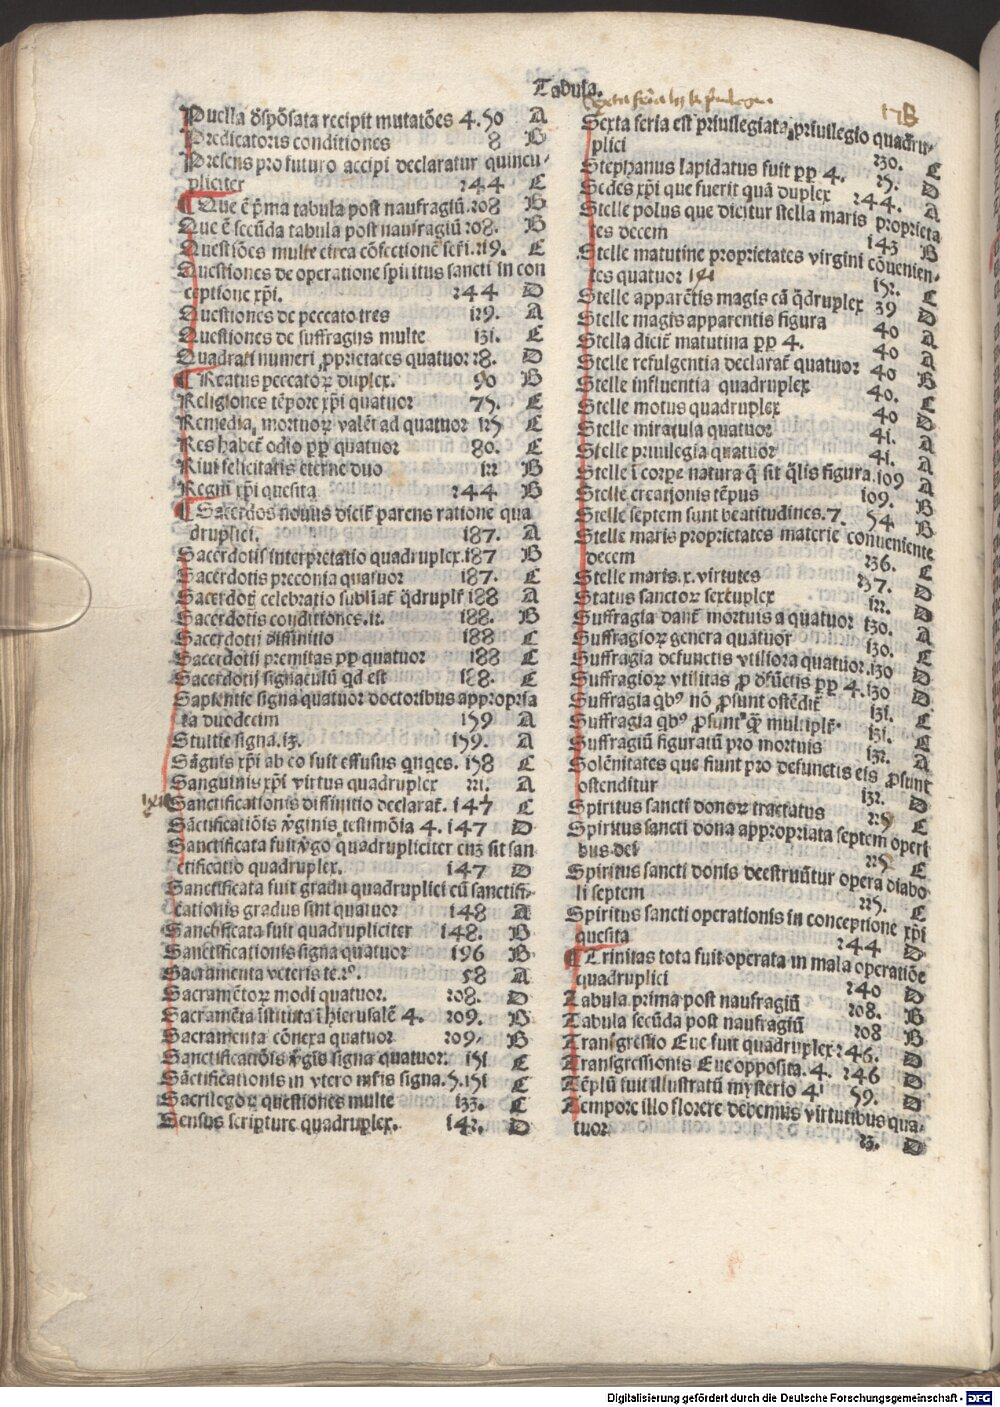 Tabula.
Puella dſpōſata recipit mutatōes 4.50 A
Predicatoris conditiones 8 B
Preſens pro futuro accipi declaratur quincu⸗
pliciter 244 C
Que ē p̄ma tabula poſt naufragiū.208 B
Que ē ſecūda tabula poſt naufragiū 208. B
Queſtiōes multe circa cōfectionē ſcri.219. C
Queſtiones de operatione ſpiritus ſancti in con
ceptione xp̄i. 244 D
Queſtiones de peccato tres 129. A
Queſtiones de ſuffragiis multe 131. C
Quadrati numeri ꝓprietates quatuor 28. D
Reatus peccatoꝝ duplex. 90 B
Religiones tēpore xp̄i quatuor 75. C
Remedia mortuoꝝ valēt ad quatuor 125 C
Res habet̄ odio ꝓꝑ quatuor 80. C
Riui felicitatis eterne duo 122 B
Regnū xp̄i queſita 244 B
Sacerdos nouus dicit̄ parens ratione qua
druplici. 187. A
Sacerdotis interpretatio quadruplex.187 B
Sacerdotis preconia quatuor 187. C
Sacerdotū celebratio ſubliat̄ q̄drupl̄r 188 A
Sacerdotis conditiones.12. 188. B
Sacerdotii diffinitio 188 C
Sacerdotii premitas ꝓꝑ quatuor 188 C
Sacerdotij ſignaculū qd̄ eſt 188. C
Sapientie ſigna quatuor doctoribus appropria
ta duodecim 159 A
Stultie ſigna.12. 159. A
Sāguis xp̄i ab eo fuit effuſus qnqes. 158 C
Sanguinis xp̄i virtus quadruplex 221. A
Sanctificationis diffinitio declarat̄. 147 C
Sāctificatiōis v̄ginis teſtimōia 4. 147 D
Sanctificata fuit v̄go quadrupliciter cuꝫ ſit ſan
ctificatio quadruplex. 147 D
Sanctificata fuit gradu quadruplici cū ſanctifi⸗
cationis gradus ſint quatuor 148 A
Sanctificata fuit quadrupliciter 148. B
Sanctificationis ſigna quatuor 196 B
Sacramenta veteris te. 58 A
Sacramētoꝝ modi quatuor. 208. D
Sacramēta īſtituta ī hieruſalē 4. 209. B
Sacramenta cōnexa quatuor 209. B
Sanctificatiōis v̄gīs ſigna quatuor. 151 C
Sāctificationis in vtero mr̄is ſigna.5.151 C
Sacrilegoꝝ queſtiones multe 133. C
Senſus ſcripture quadruplex. 142. D
Sexta feria eſt priuilegiata priuilegio quadru⸗
plici 230. C
Stephanus lapidatus fuit ꝓꝑ 4. 25. D
Sedes xp̄i que fuerit quā duplex 244. A
Stelle polus que dicitur ſtella maris proprieta
tes decem 143 B
Stelle matutine proprietates virgini cōuenien⸗
tes quatuor 152. C
Stelle apparētis magis cā q̄druplex 39 D
Stelle magis apparentis figura 40 A
Stella dicit̄ matutina ꝓꝑ 4. 40 A
Stelle refulgentia declarat̄ quatuor 40 B
Stelle influentia quadruplex 40. C
Stelle motus quadruplex 40 D
Stelle miracula quatuor 41. A
Stelle priuilegia quatuor 41. A
Stelle ī corpe natura q̄ ſit q̄lis figura.109 A
Stelle creationis tēpus 109. B
Stelle ſeptem ſunt beatitudines.7. 54 B
Stelle maris proprietates materie conueniente
decem 236. C
Stelle maris.x.virtutes 237. D
Status ſanctoꝝ ſextuplex 122. D
Suffragia dant̄ mortuis a quatuor 130. A
Suffragioꝝ genera quatuor 130. C
Suffragia defunctis vtiliora quatuor.130 D
Suffragioꝝ vtilitas ꝓ dfūctis ꝓꝑ 4.130 D
Suffragia qbꝰ nō ꝓſunt oſtēdit̄ 131. C
Suffragia qbꝰ ꝓſunt qꝫ multipl̄r 131. C
Suffragiū figuratū pro mortuis 132. A
Solēnitates que fiunt pro defunctis eis ꝓſunt
oſtenditur 132. D
Spiritus ſancti donoꝝ tractatus 225 C
Spiritus ſancti dona appropriata ſeptem operi
bus dei 225 C
Spiritus ſancti donis deſtruūtur opera diabo
li ſeptem 225. C
Spiritus ſancti operationis in conceptione xp̄i
queſita 244 D
Trinitas tota fuit operata in mala operatiōe
quadruplici 240 D
Tabula prima poſt naufragiū 208. B
Tabula ſecūda poſt naufragiū 208 B
Tranſgreſſio Eue fuit quadruplex 246. D
Tranſgreſſionis Eue oppoſita.4. 246 D
Tēplū fuit illuſtratū myſterio 4 59. D
Tempore illo florere debemus virtutibus qua⸗
tuor 23. D
Digitalisierung gefördert durch die Deutsche Forschungsgemeinschaft - DFG